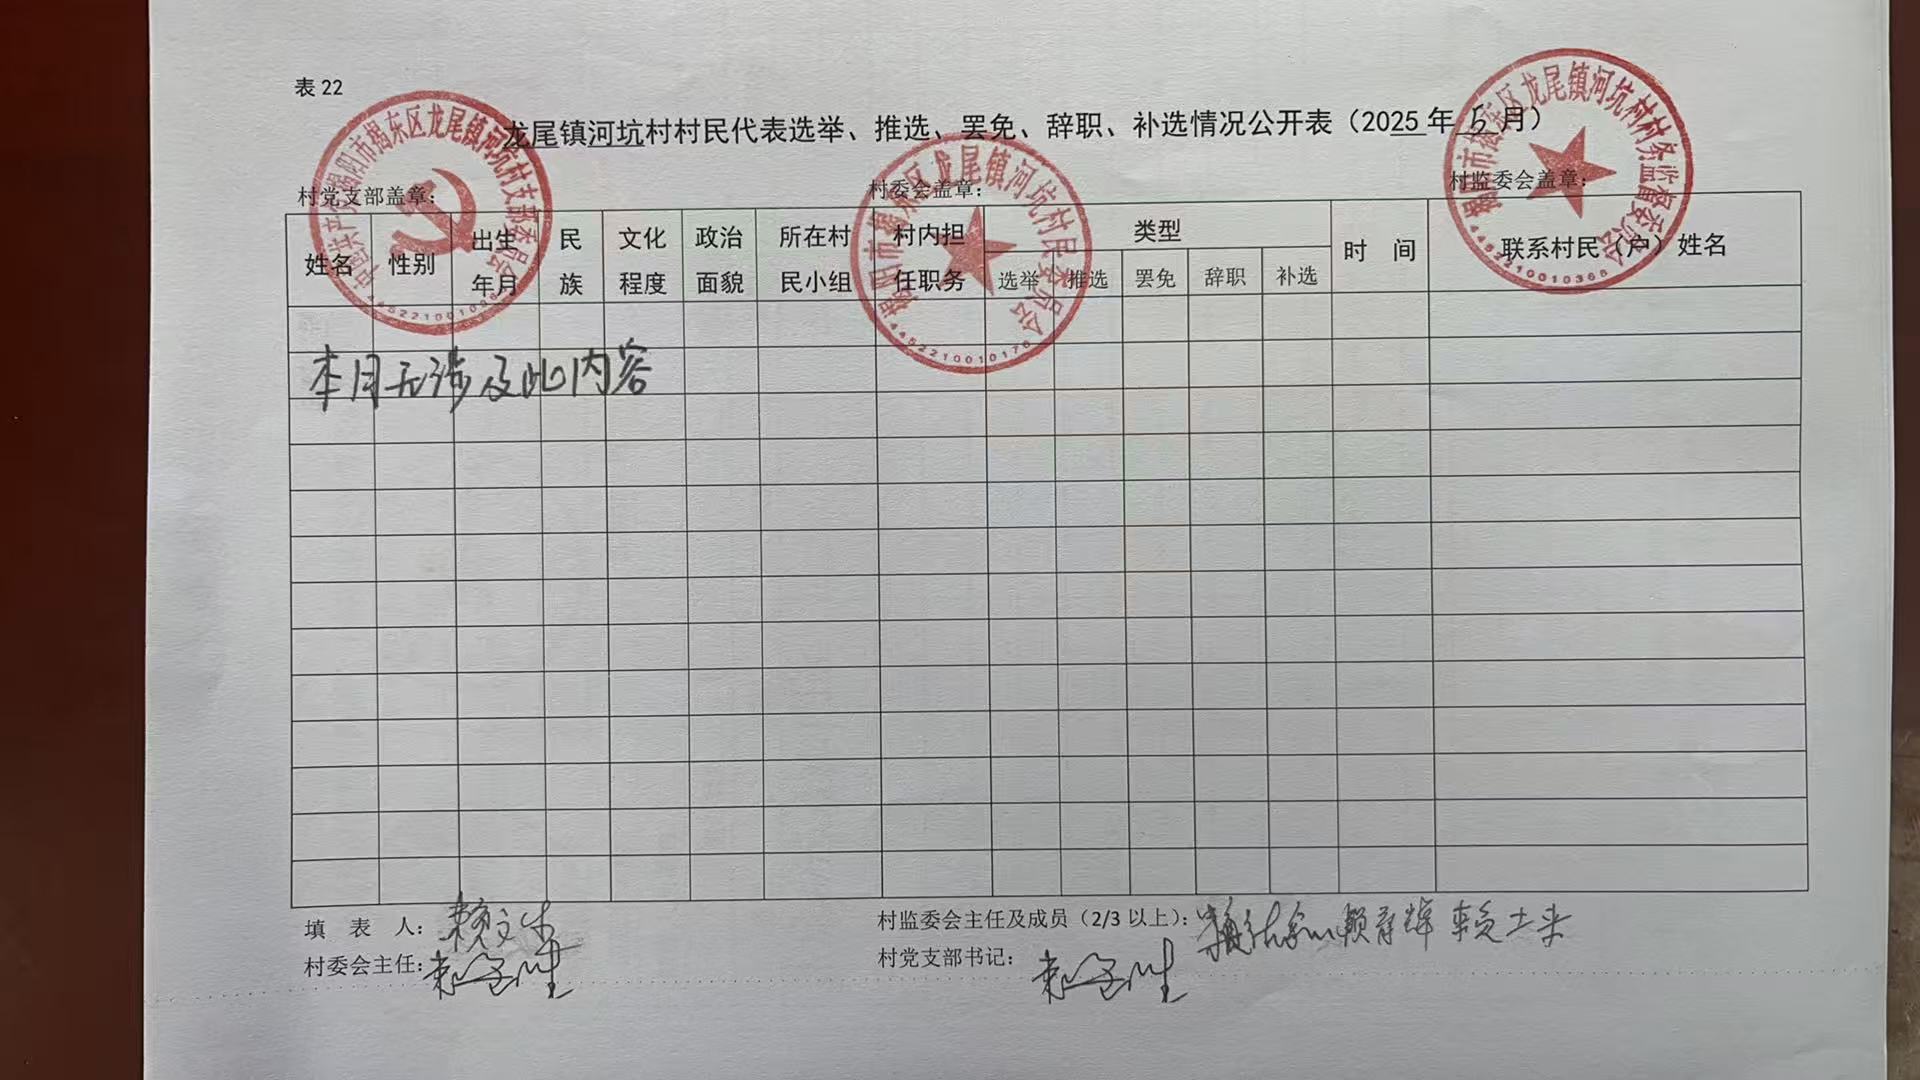 表 22
龙尾镇河坑村村民代表选举、推选、罢免、辞职、补选情况公开表（2025 年 5 月）
村党支部盖章： 村委会盖章： 村监委会盖章：
中国共产党揭阳市揭东区龙尾镇河坑村支部委员会
揭阳市揭东区龙尾镇河坑村村民委员会
4452210010176
揭阳市揭东区龙尾镇河坑村村务监督委员会
4452210010366
姓名 性别 出生年月 民族 文化程度 政治面貌 所在村民小组 村内担任职务 类型 时 间 联系村民（户）姓名
选举 推选 罢免 辞职 补选
本月无涉及此内容
填 表 人： 村监委会主任及成员（2/3 以上）：
村委会主任： 村党支部书记：